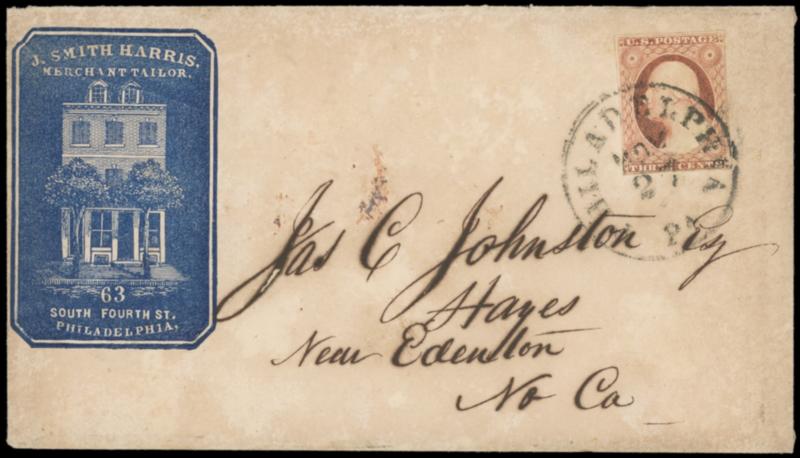 J. SMITH HARRIS,
MERCHANT TAILOR.
63
SOUTH FOURTH ST.
PHILADELPHIA,
U.S. POSTAGE
THREE CENTS
PHILADELPHIA
PA
Jas C Johnston Esq
Hayes
Near Edenton
No Ca